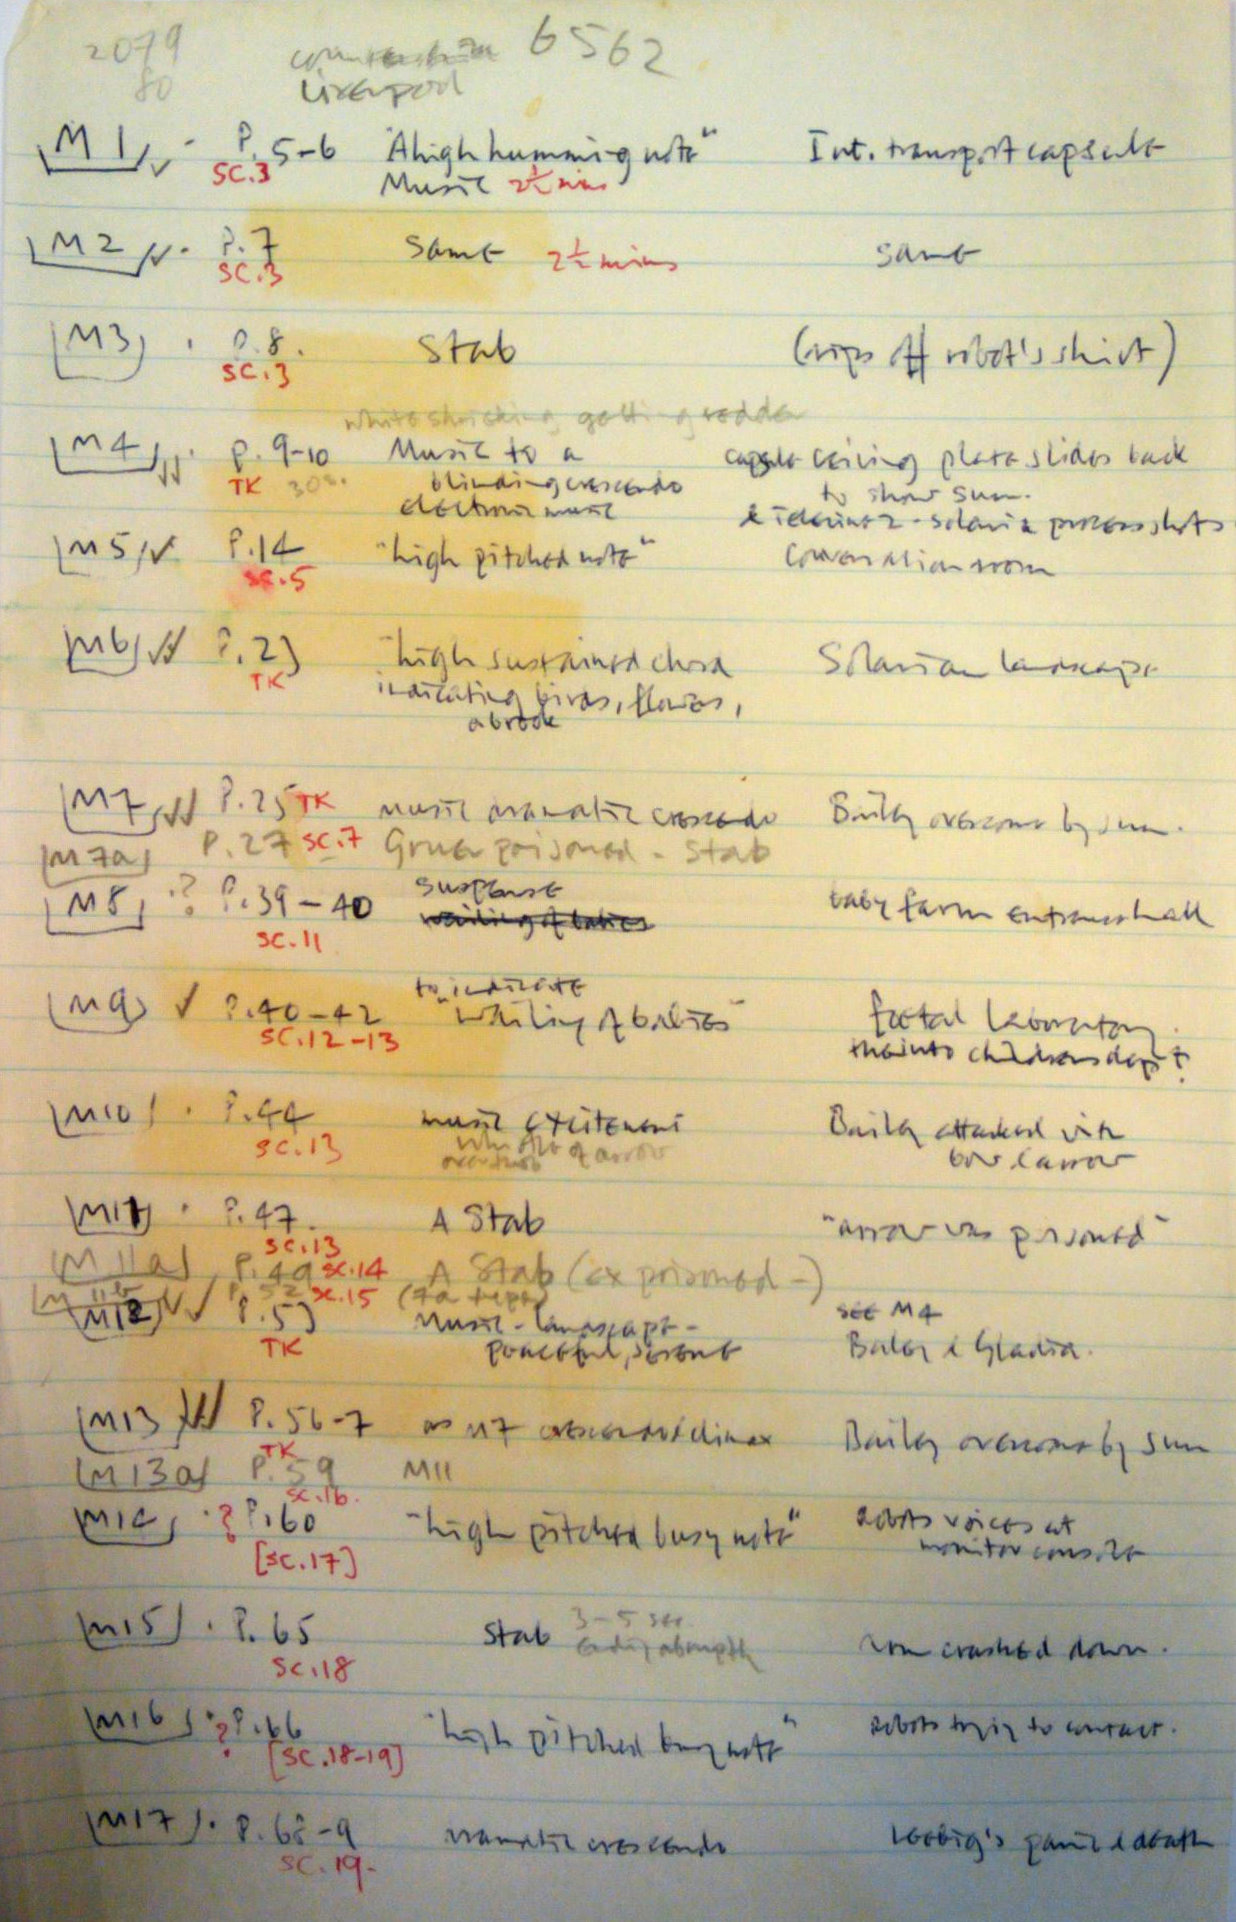 2079 6562
80 Liverpool
M1 P. 5-6 "A high humming note" Int. transport capsule
SC.3 Music 2½ mins
M2 P.7 Same 2½ mins same
SC.3
M3 P.8. Stab (rips off robot's shirt)
SC.3
white shrieking getting redder
M4 P. 9-10 Music to a capsule ceiling plate slides back
TK 30s. blinding crescendo to show sun.
electronic music & - Solaria process shots
M5 P.14 "high pitched note" Conversation room
SC.5
M6 P.23 "high sustained chord Solarian landscape
TK indicating birds, flowers,
a brook
M7 P.25 TK music dramatic crescendo Bailey overcome by sun.
M7a P.27 SC.7 Gruer poisoned - Stab
M8 ? P.39-40 suspense baby farm entrance hall
SC.11 wailing of babies
to indicate
M9 P.40-42 "wailing of babies" foetal laboratory
SC.12-13 then into childrens dept.
M10 P.44 music excitement Bailey attacked with
SC.13 whistle of arrow bow & arrow
M11 P.47. A Stab "arrow was poisoned"
SC.13
M11a P.49 SC.14 A Stab (ex poisoned -)
M11b P.52 SC.15
M12 P.53 Music - landscape - see M4
TK peaceful, serene Bailey & Gladia.
M13 P.56-7 as M7 crescendo & climax Bailey overcome by sun
TK
M13a P.59 M11
SC.16.
M14 ? P.60 "high pitched busy note" Robots voices at
[SC.17] monitor console
M15 P.65 Stab 3-5 sec. crashed down.
SC.18 ending abruptly
M16 ? P.66 "high pitched busy note" Robots trying to contact.
[SC.18-19]
M17 P.68-9 dramatic crescendo Leebig's panic & death
SC.19.